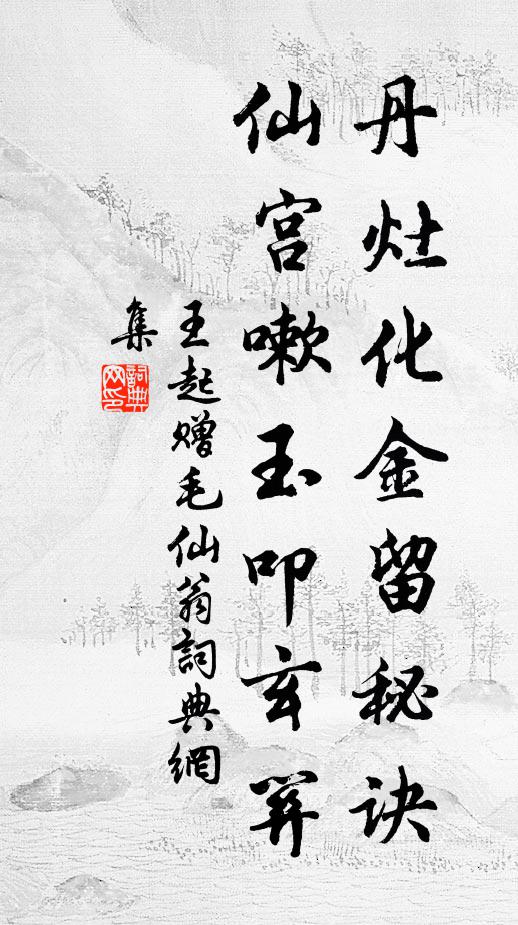 丹灶化金留秘诀
仙宫嗽玉叩玄关
王起赠毛仙翁詞典網
集
詞典網印